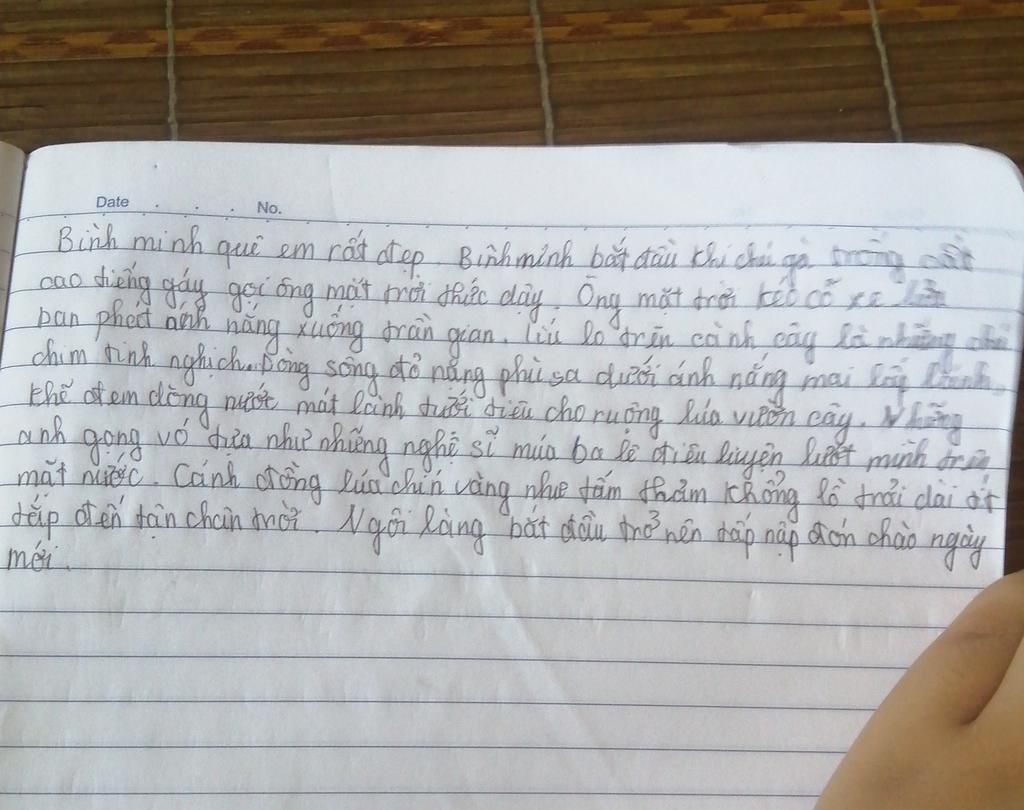 Date . . . No.
Bình minh quê em rất đẹp. Bình minh bắt đầu khi chú gà trống cất
cao tiếng gáy gọi ông mặt trời thức dậy. Ông mặt trời kéo cỗ xe lên
ban phést ánh nắng xuống trần gian. Líu lo trên cành cây là những chú
chim tinh nghịch. Dòng sông đỏ nặng phù sa dưới ánh nắng mai lấp lánh
khẽ đem dòng nước mát lành tưới tiêu cho ruộng lúa vườn cây. Những
anh gọng vó tựa như những nghệ sĩ múa ba lê điêu luyện lướt mình trên
mặt nước. Cánh đồng lúa chín vàng như tấm thảm khổng lồ trải dài ít
tắp đến tận chân trời. Ngôi làng bắt đầu trở nên tấp nập đón chào ngày
mới.